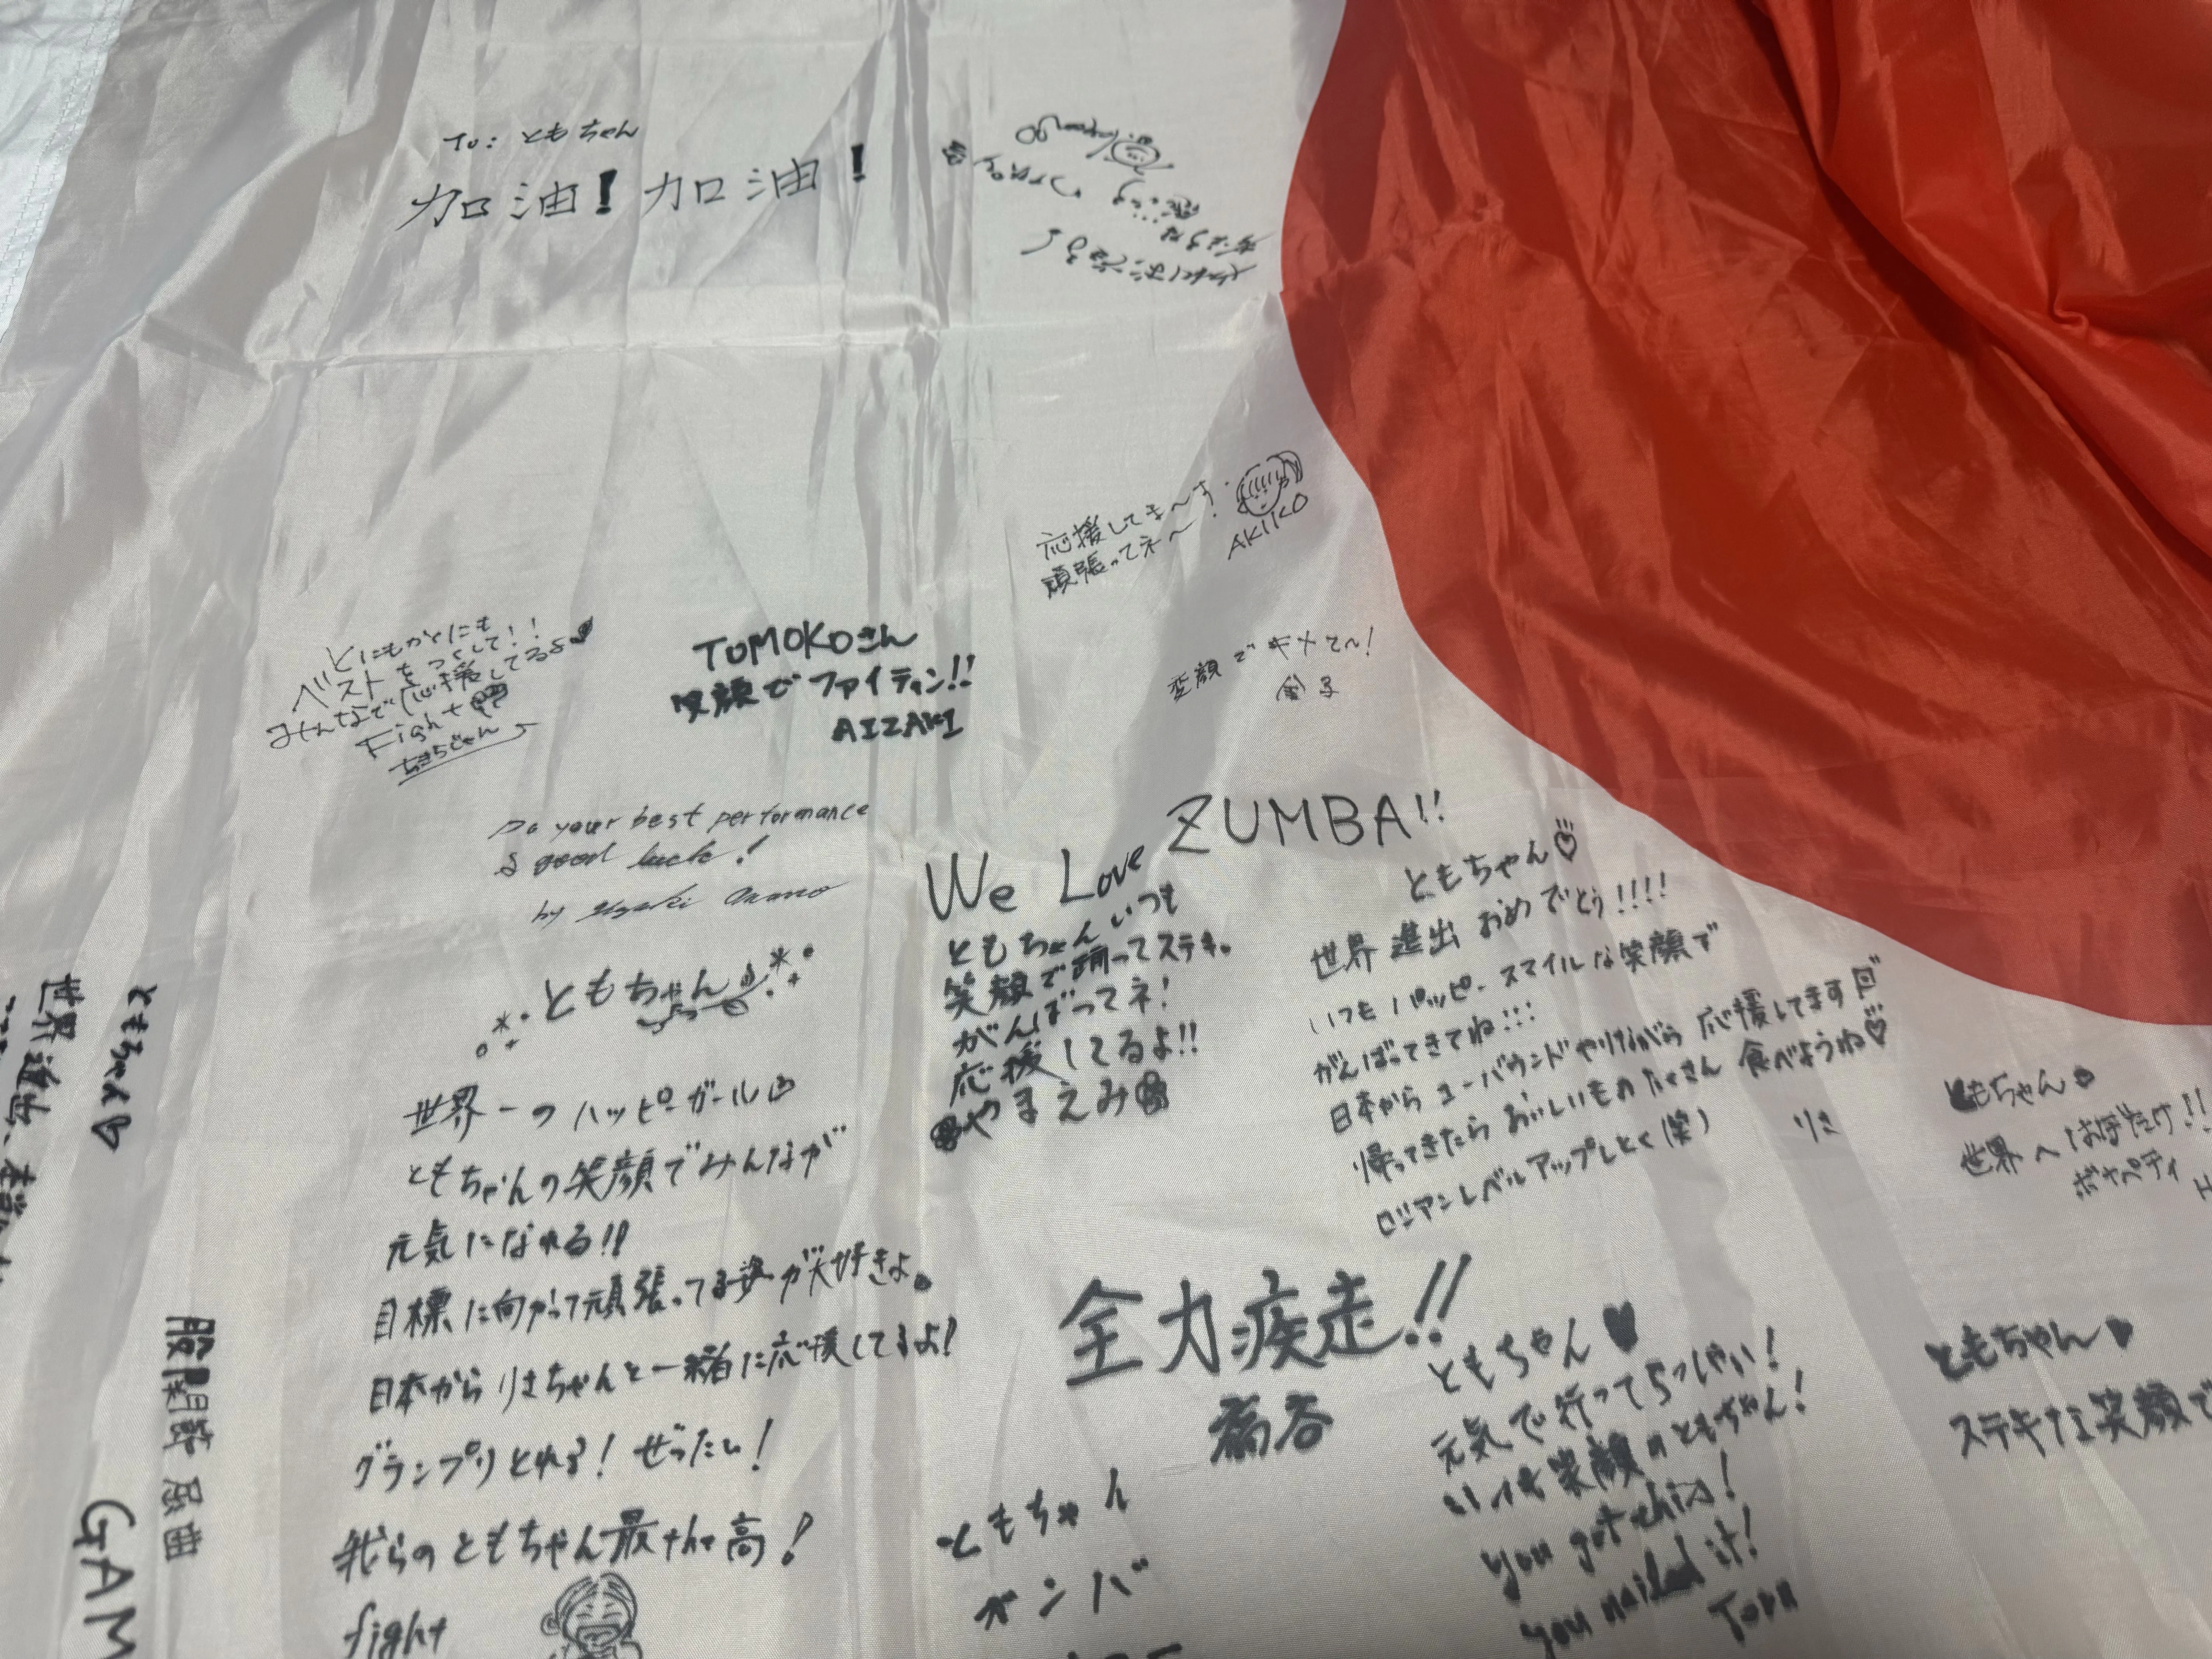 To: ともちゃん
加油!加油!
応援してま〜す.
頑張ってネ〜!
AKIKO
とにもかくにも
ベストをつくして!!
みんなで応援してるよ
Fight
TOMOKOさん
笑顔でファイティン!!
AIZAKI
変顔でキメて〜!
金子
Do your best performance
& good luck!
by
We Love ZUMBA!!
ともちゃんいつも
笑顔で踊ってステキ。
がんばってネ!
応援してるよ!!
やまえみ
ともちゃん
世界進出おめでとう!!!!
いつもハッピースマイルな笑顔で
がんばってきてね!!!
日本からユーバウンドやりながら応援してます
帰ってきたらおいしいものたくさん食べようね
ロシアンレベルアップしとく(笑)
りさ
ともちゃん
世界一のハッピーガール
ともちゃんの笑顔でみんなが
元気になれる!!
目標に向かって頑張ってる姿が大好きよ。
日本からりさちゃんと一緒に応援してるよ!
グランプリとれる!ぜったい!
我らのともちゃん最高!
fight
ともちゃん
世界へはばたけ!!
ボナペティ
全力疾走!!
ともちゃん
元気で行ってらっしゃい!
いつも笑顔のともちゃん!
you got this!
you nailed it!
Toru
ともちゃん
ガンバ
ともちゃん
ステキな笑顔で
ともちゃん
世界進出、
股関節 屈曲
GAM